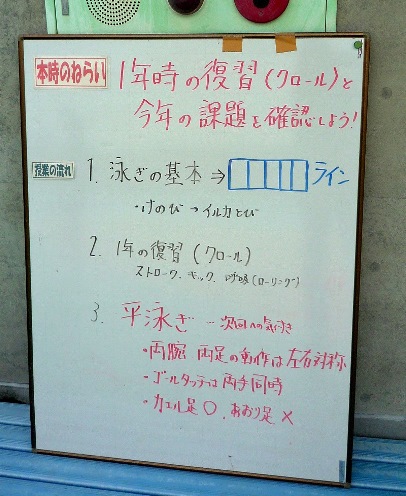 本時のねらい
1年時の復習(クロール)と
今年の課題を確認しよう!
授業の流れ
1. 泳ぎの基本⇒ ライン
・けのび→イルカとび
2. 1年の復習(クロール)
ストローク、キック、呼吸(ローリング)
3. 平泳ぎ…次回への気付き
・両腕 両足の動作は左右対称
・ゴールタッチは両手同時
・カエル足○、あおり足×